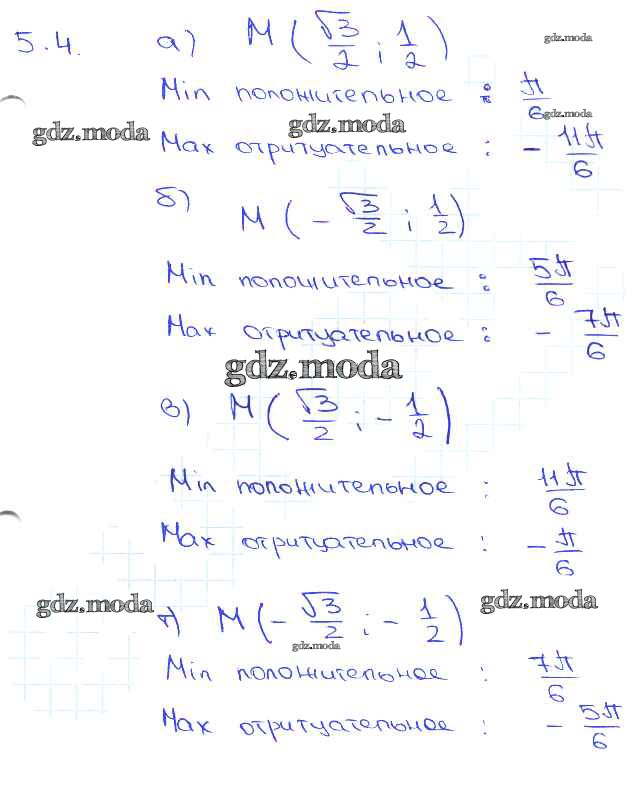 5.4. а) M (√3/2 ; 1/2) gdz.moda
Min положительное : π/6 gdz.moda
gdz.moda gdz.moda
Max отрицательное : - 11π/6
б) M (- √3/2 ; 1/2)
Min положительное : 5π/6
Max отрицательное : - 7π/6
gdz.moda
в) M (√3/2 ; - 1/2)
Min положительное : 11π/6
Max отрицательное : - π/6
gdz.moda gdz.moda
г) M (- √3/2 ; - 1/2)
gdz.moda
Min положительное : 7π/6
Max отрицательное : - 5π/6